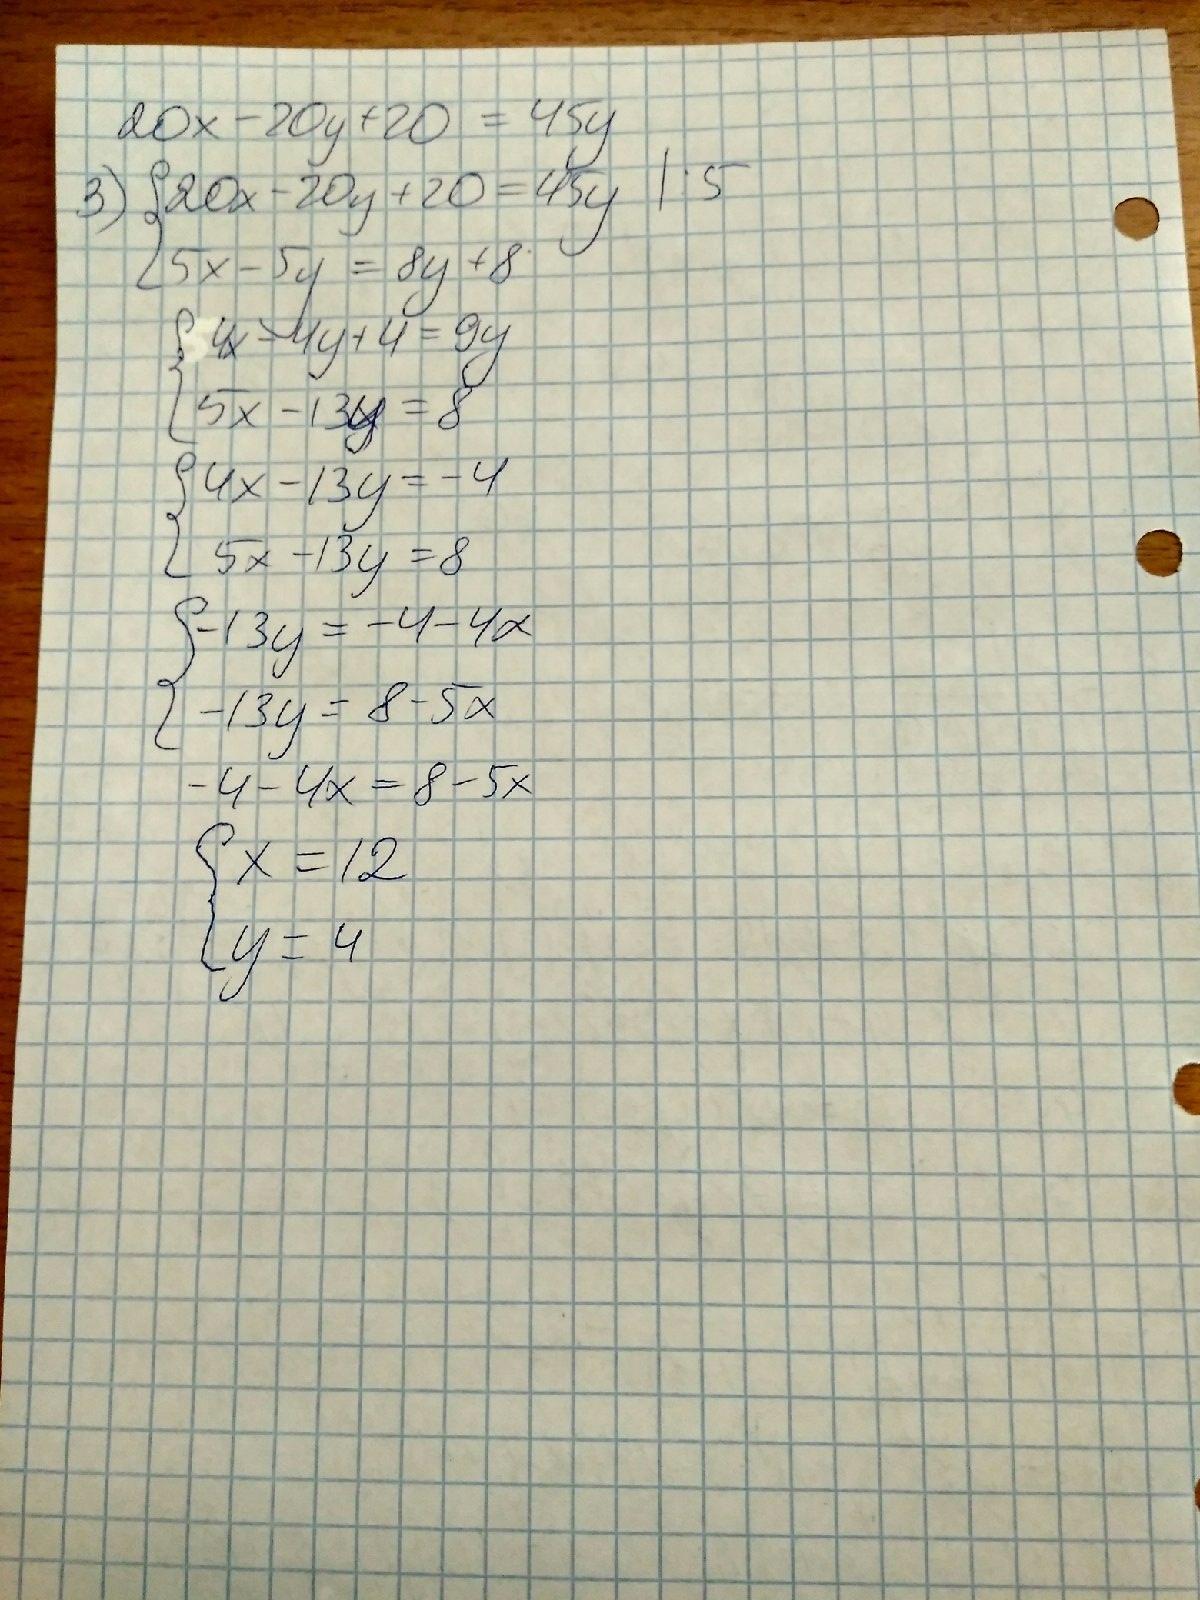 20x - 20y + 20 = 45y
3) { 20x - 20y + 20 = 45y | : 5
5x - 5y = 8y + 8
{ 4x - 4y + 4 = 9y
5x - 13y = 8
{ 4x - 13y = -4
5x - 13y = 8
{ -13y = -4 - 4x
-13y = 8 - 5x
-4 - 4x = 8 - 5x
{ x = 12
y = 4